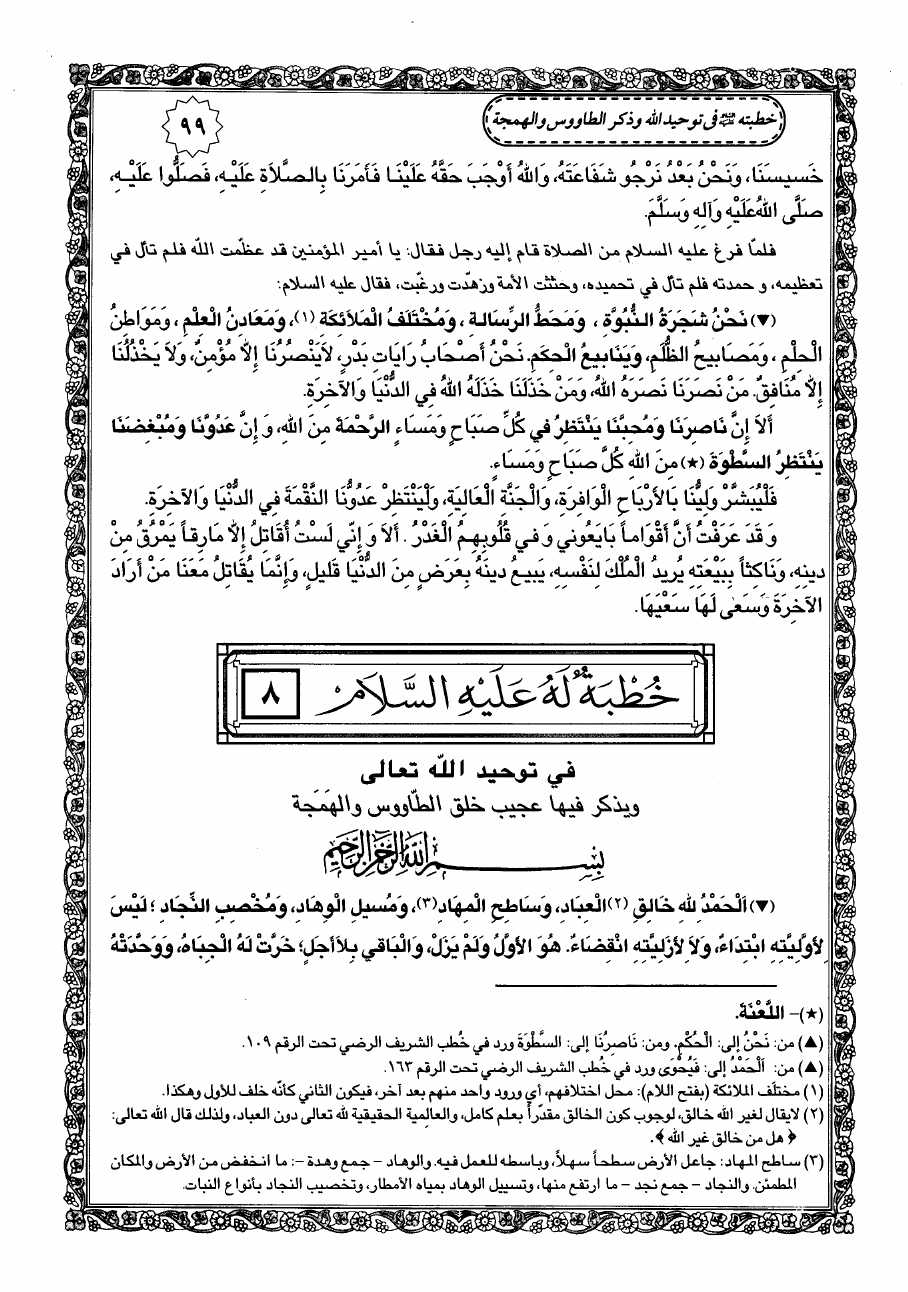 خطبته عليه السلام في توحيد الله وذكر الطاووس والهمجة
٩٩
خَسِيسَنَا، وَنَحْنُ بَعْدُ نَرْجُو شَفَاعَتَهُ، وَاللهُ أَوْجَبَ حَقَّهُ عَلَيْنَا فَأَمَرَنَا بِالصَّلَاةِ عَلَيْهِ، فَصَلُّوا عَلَيْهِ،
صَلَّى اللهُ عَلَيْهِ وَآلِهِ وَسَلَّمَ.
فلمّا فرغ عليه السلام من الصلاة قام إليه رجل فقال: يا أمير المؤمنين قد عظّمت الله فلم تأل في
تعظيمه، و حمدته فلم تأل في تحميده، وحثثت الأمة وزهّدت ورغّبت، فقال عليه السلام:
(▼) نَحْنُ شَجَرَةُ النُّبُوَّةِ ، وَمَحَطُّ الرِّسَالَةِ ، وَمُخْتَلَفُ الْمَلَائِكَةِ (١)، وَمَعَادِنُ الْعِلْمِ ، وَمَوَاطِنُ
الْحِلْمِ ، وَمَصَابِيحُ الظُّلَمِ، وَيَنَابِيعُ الْحِكَمِ. نَحْنُ أَصْحَابُ رَايَاتِ بَدْرٍ، لَايَنْصُرُنَا إِلَّا مُؤْمِنٌ، وَلَا يَخْذُلُنَا
إِلَّا مُنَافِقٌ. مَنْ نَصَرَنَا نَصَرَهُ اللهُ، وَمَنْ خَذَلَنَا خَذَلَهُ اللهُ فِي الدُّنْيَا وَالآخِرَةِ.
أَلَا إِنَّ نَاصِرَنَا وَمُحِبَّنَا يَنْتَظِرُ فِي كُلِّ صَبَاحٍ وَمَسَاءٍ الرَّحْمَةَ مِنَ اللهِ، وَ إِنَّ عَدُوَّنَا وَمُبْغِضَنَا
يَنْتَظِرُ السَّطْوَةَ (★) مِنَ اللهِ كُلَّ صَبَاحٍ وَمَسَاءٍ.
فَلْيُبَشَّرْ وَلِيُّنَا بِالأَرْبَاحِ الْوَافِرَةِ، وَالْجَنَّةِ الْعَالِيَةِ، وَلْيَنْتَظِرْ عَدُوُّنَا النَّقْمَةَ فِي الدُّنْيَا وَالآخِرَةِ.
وَ قَدْ عَرَفْتُ أَنَّ أَقْوَاماً بَايَعُونِي وَ فِي قُلُوبِهِمُ الْغَدْرُ . أَلَا وَ إِنِّي لَسْتُ أُقَاتِلُ إِلَّا مَارِقاً يَمْرُقُ مِنْ
دِينِهِ، وَنَاكِثاً بِبَيْعَتِهِ يُرِيدُ الْمُلْكَ لِنَفْسِهِ، يَبِيعُ دِينَهُ بِعَرَضٍ مِنَ الدُّنْيَا قَلِيلٍ، وَإِنَّمَا يُقَاتِلُ مَعَنَا مَنْ أَرَادَ
الآخِرَةَ وَسَعَى لَهَا سَعْيَهَا.
خُطْبَةٌ لَهُ عَلَيْهِ السَّلَامُ ٨
في توحيد الله تعالى
ويذكر فيها عجيب خلق الطّاووس والهَمَجة
بِسْمِ اللهِ الرَّحْمَنِ الرَّحِيمِ
(▼) اَلْحَمْدُ لله خَالِقِ (٢) الْعِبَادِ، وَسَاطِحِ الْمِهَادِ (٣)، وَمُسِيلِ الْوِهَادِ، وَمُخْصِبِ النِّجَادِ ؛ لَيْسَ
لأَوَّلِيَّتِهِ ابْتِدَاءٌ، وَلَا لأَزَلِيَّتِهِ انْقِضَاءٌ. هُوَ الأَوَّلُ وَلَمْ يَزَلْ، وَالْبَاقِي بِلاَ أَجَلٍ؛ خَرَّتْ لَهُ الْجِبَاهُ، وَوَحَّدَتْهُ
(★)– اللَّعْنَةَ.
(▲) من: نَحْنُ إلى: الْحُكْمِ. ومن: نَاصِرُنَا إلى: السَّطْوَةَ ورد في خُطب الشريف الرضي تحت الرقم ١٠٩.
(▲) من: اَلْحَمْدُ إلى: فَيُحْوَى ورد في خُطب الشريف الرضي تحت الرقم ١٦٣.
(١) مختلَف الملائكة (بفتح اللام): محل اختلافهم، أي ورود واحد منهم بعد آخر، فيكون الثاني كأنّه خلف للأول وهكذا.
(٢) لايقال لغير الله خالق، لوجوب كون الخالق مقدّراً بعلم كامل، والعالمية الحقيقية لله تعالى دون العباد، ولذلك قال الله تعالى:
﴿ هل من خالق غير الله ﴾.
(٣) ساطح المهاد: جاعل الأرض سطحاً سهلاً، وباسطه للعمل فيه. والوهاد – جمع وهدة –: ما انخفض من الأرض والمكان
المطمئن. والنجاد – جمع نجد – ما ارتفع منها، وتسييل الوهاد بمياه الأمطار، وتخصيب النجاد بأنواع النبات.